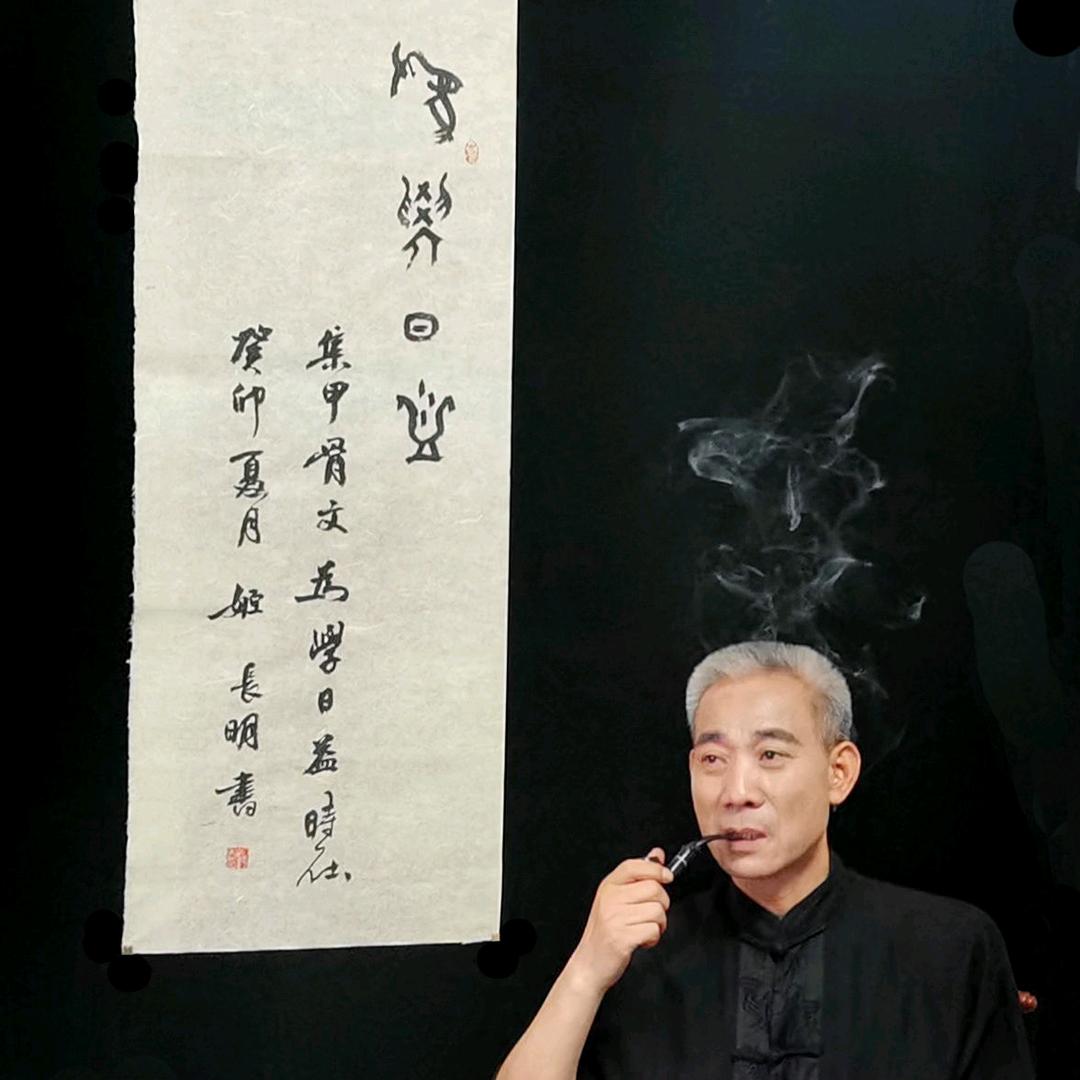 為學日益
集甲骨文為學日益時在
癸卯夏月姬長明書